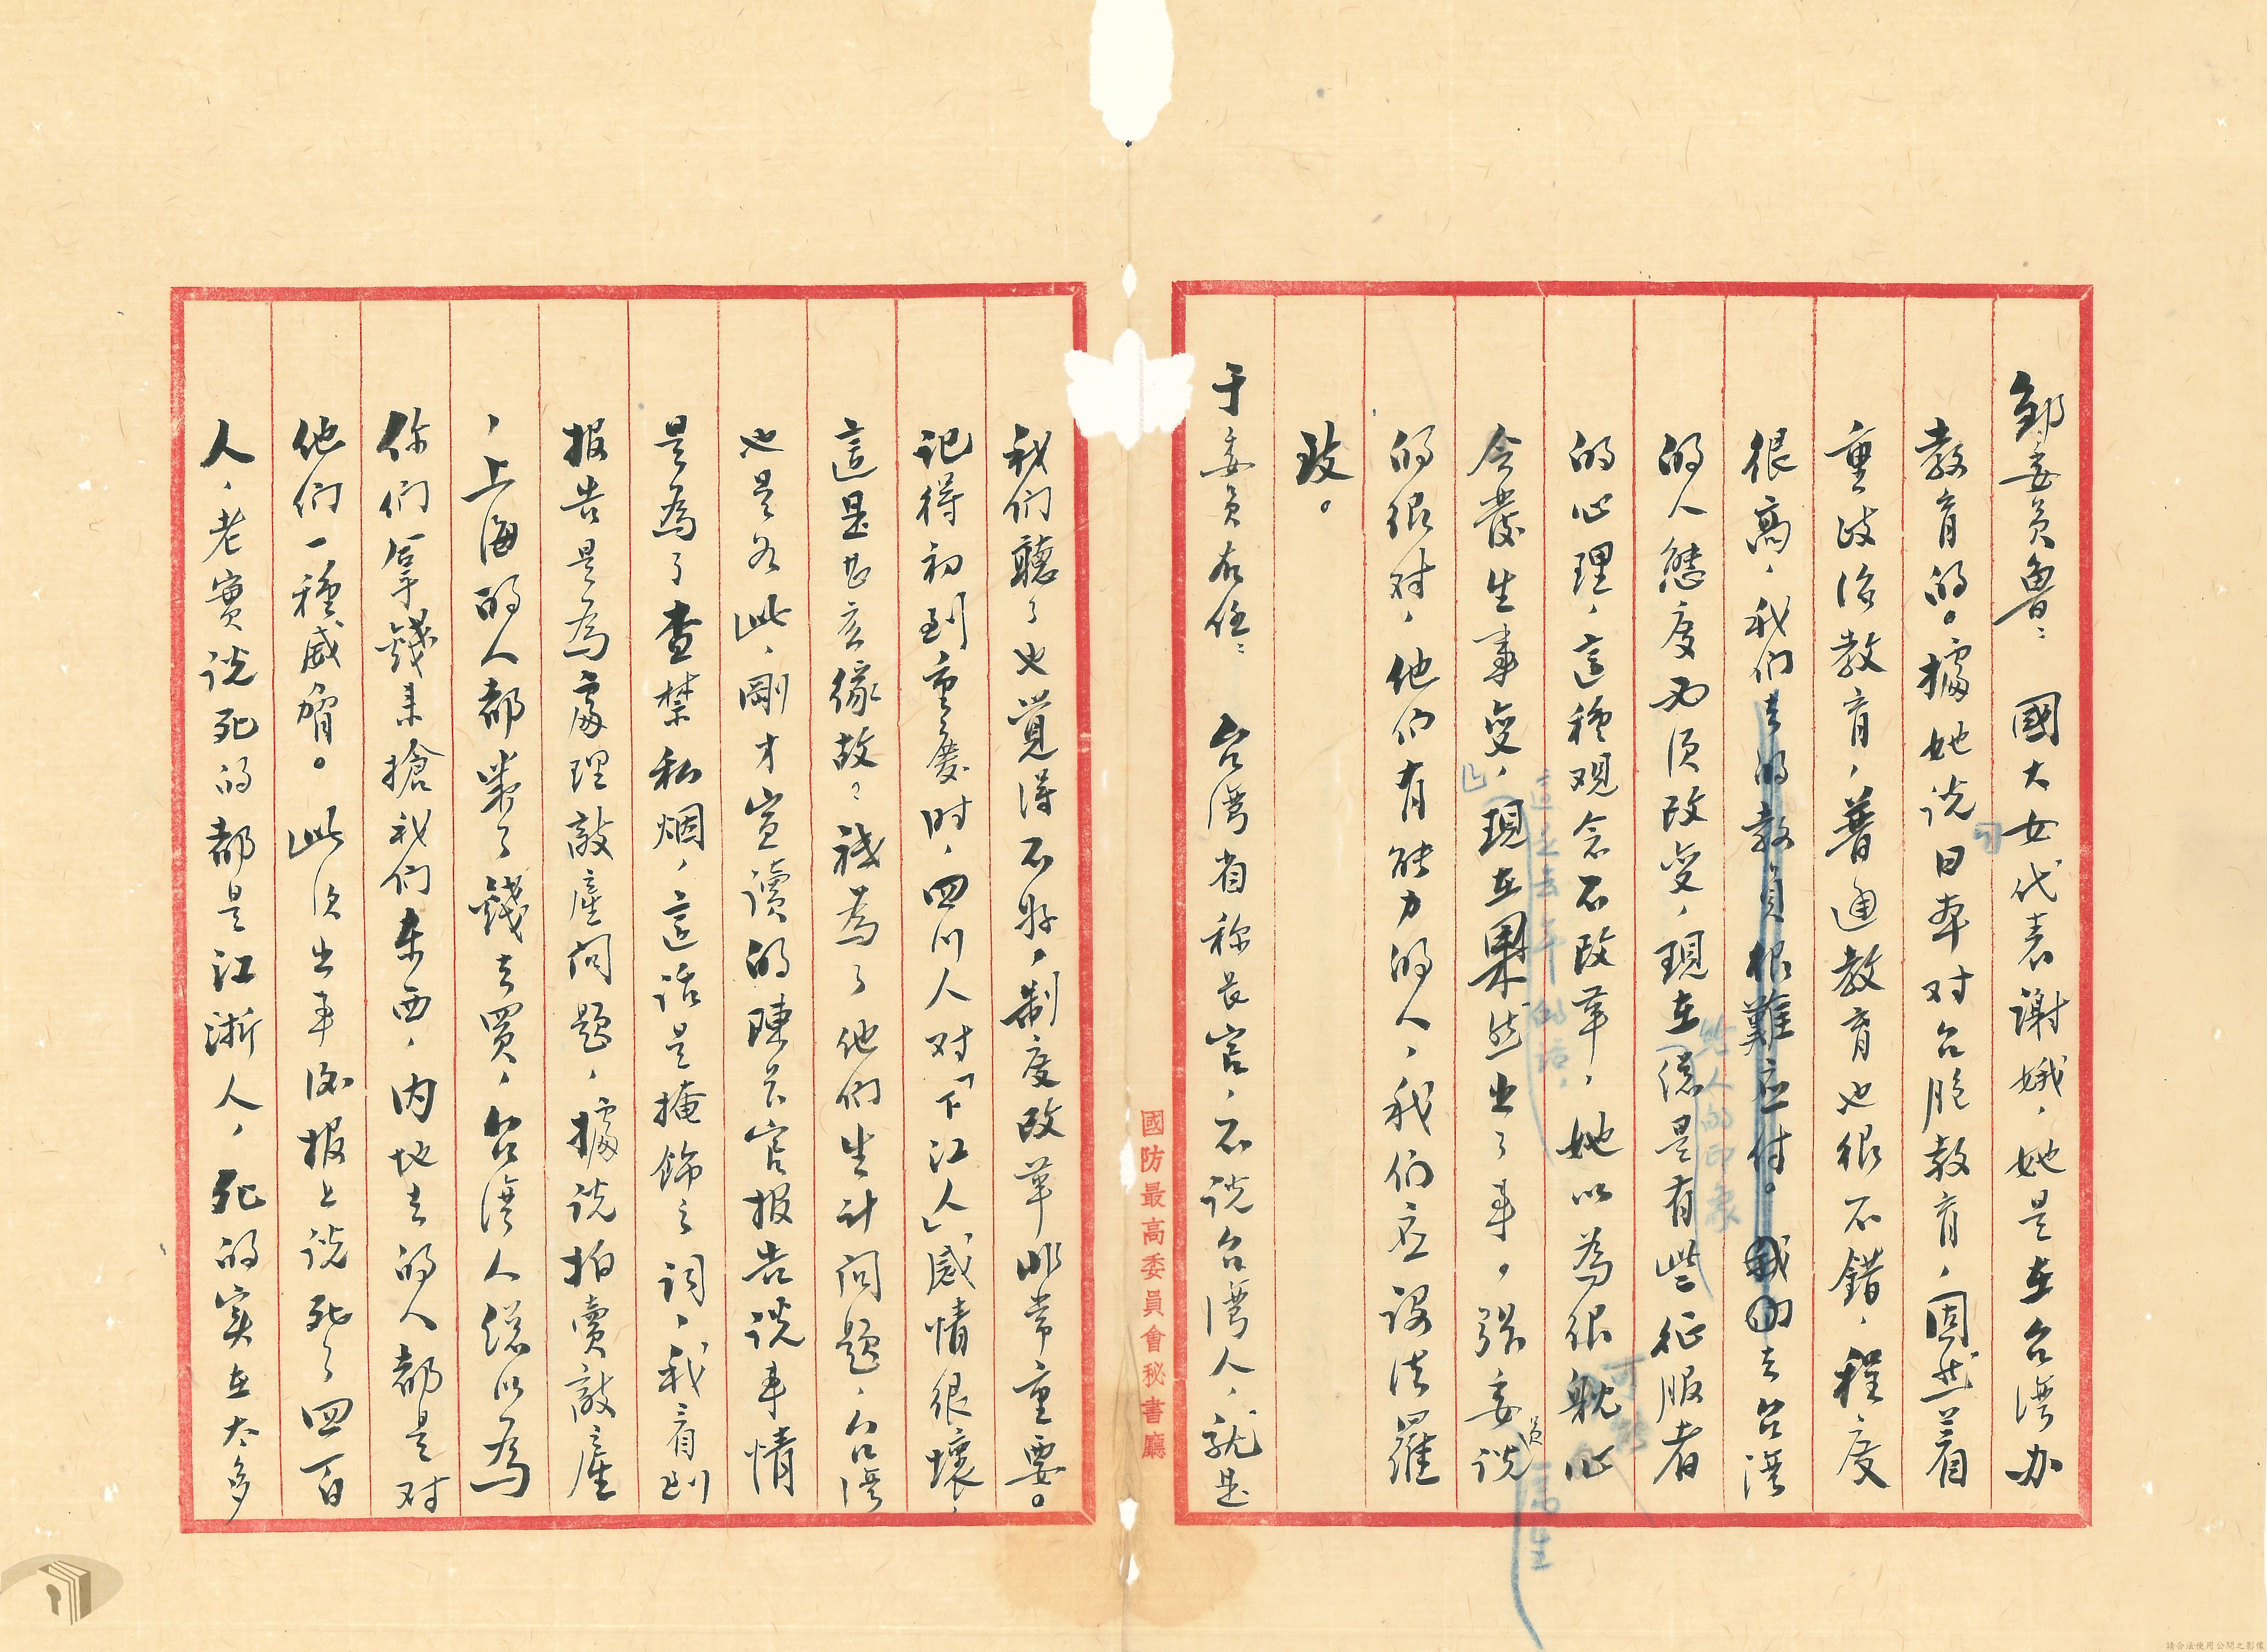 鄒委員魯：國大女代表謝娥，她是在台灣办
教育的。據她说日本对台胞教育，固然着
重政治教育，普通教育也很不錯，程度
很高，我们去的教員很難应付。我们去台湾
的人態度必須改变，現在總是有些征服者
的心理，這種观念不改革，她以為很躭心
会發生事变，現在果然出了事。張委員说
的很对，他们有能力的人，我们应設法羅
致。
于委員右任：台灣省称長官，不说台灣人，就是
我们聽了也覺得不舒，制度改革非常重要。
記得初到重慶时，四川人对「下江人」感情很壞，
這是甚么緣故？祗為了他们生计问題，台湾
也是如此，剛才宣讀的陳長官报告说事情
是為了查禁私烟，這话是掩飾之词，我看到
报告是為處理敵產问題，據说拍賣敵產
，上海的人都帶了錢去買，台湾人總以為
你们拿錢来搶我们东西，内地去的人都是对
他们一種威脅。此次出事後报上说死了四百
人，老實说死的都是江浙人，死的实在太多
這是去年的话，
些人的印象
可能
國防最高委員會秘書廳
請合法使用公開之影像